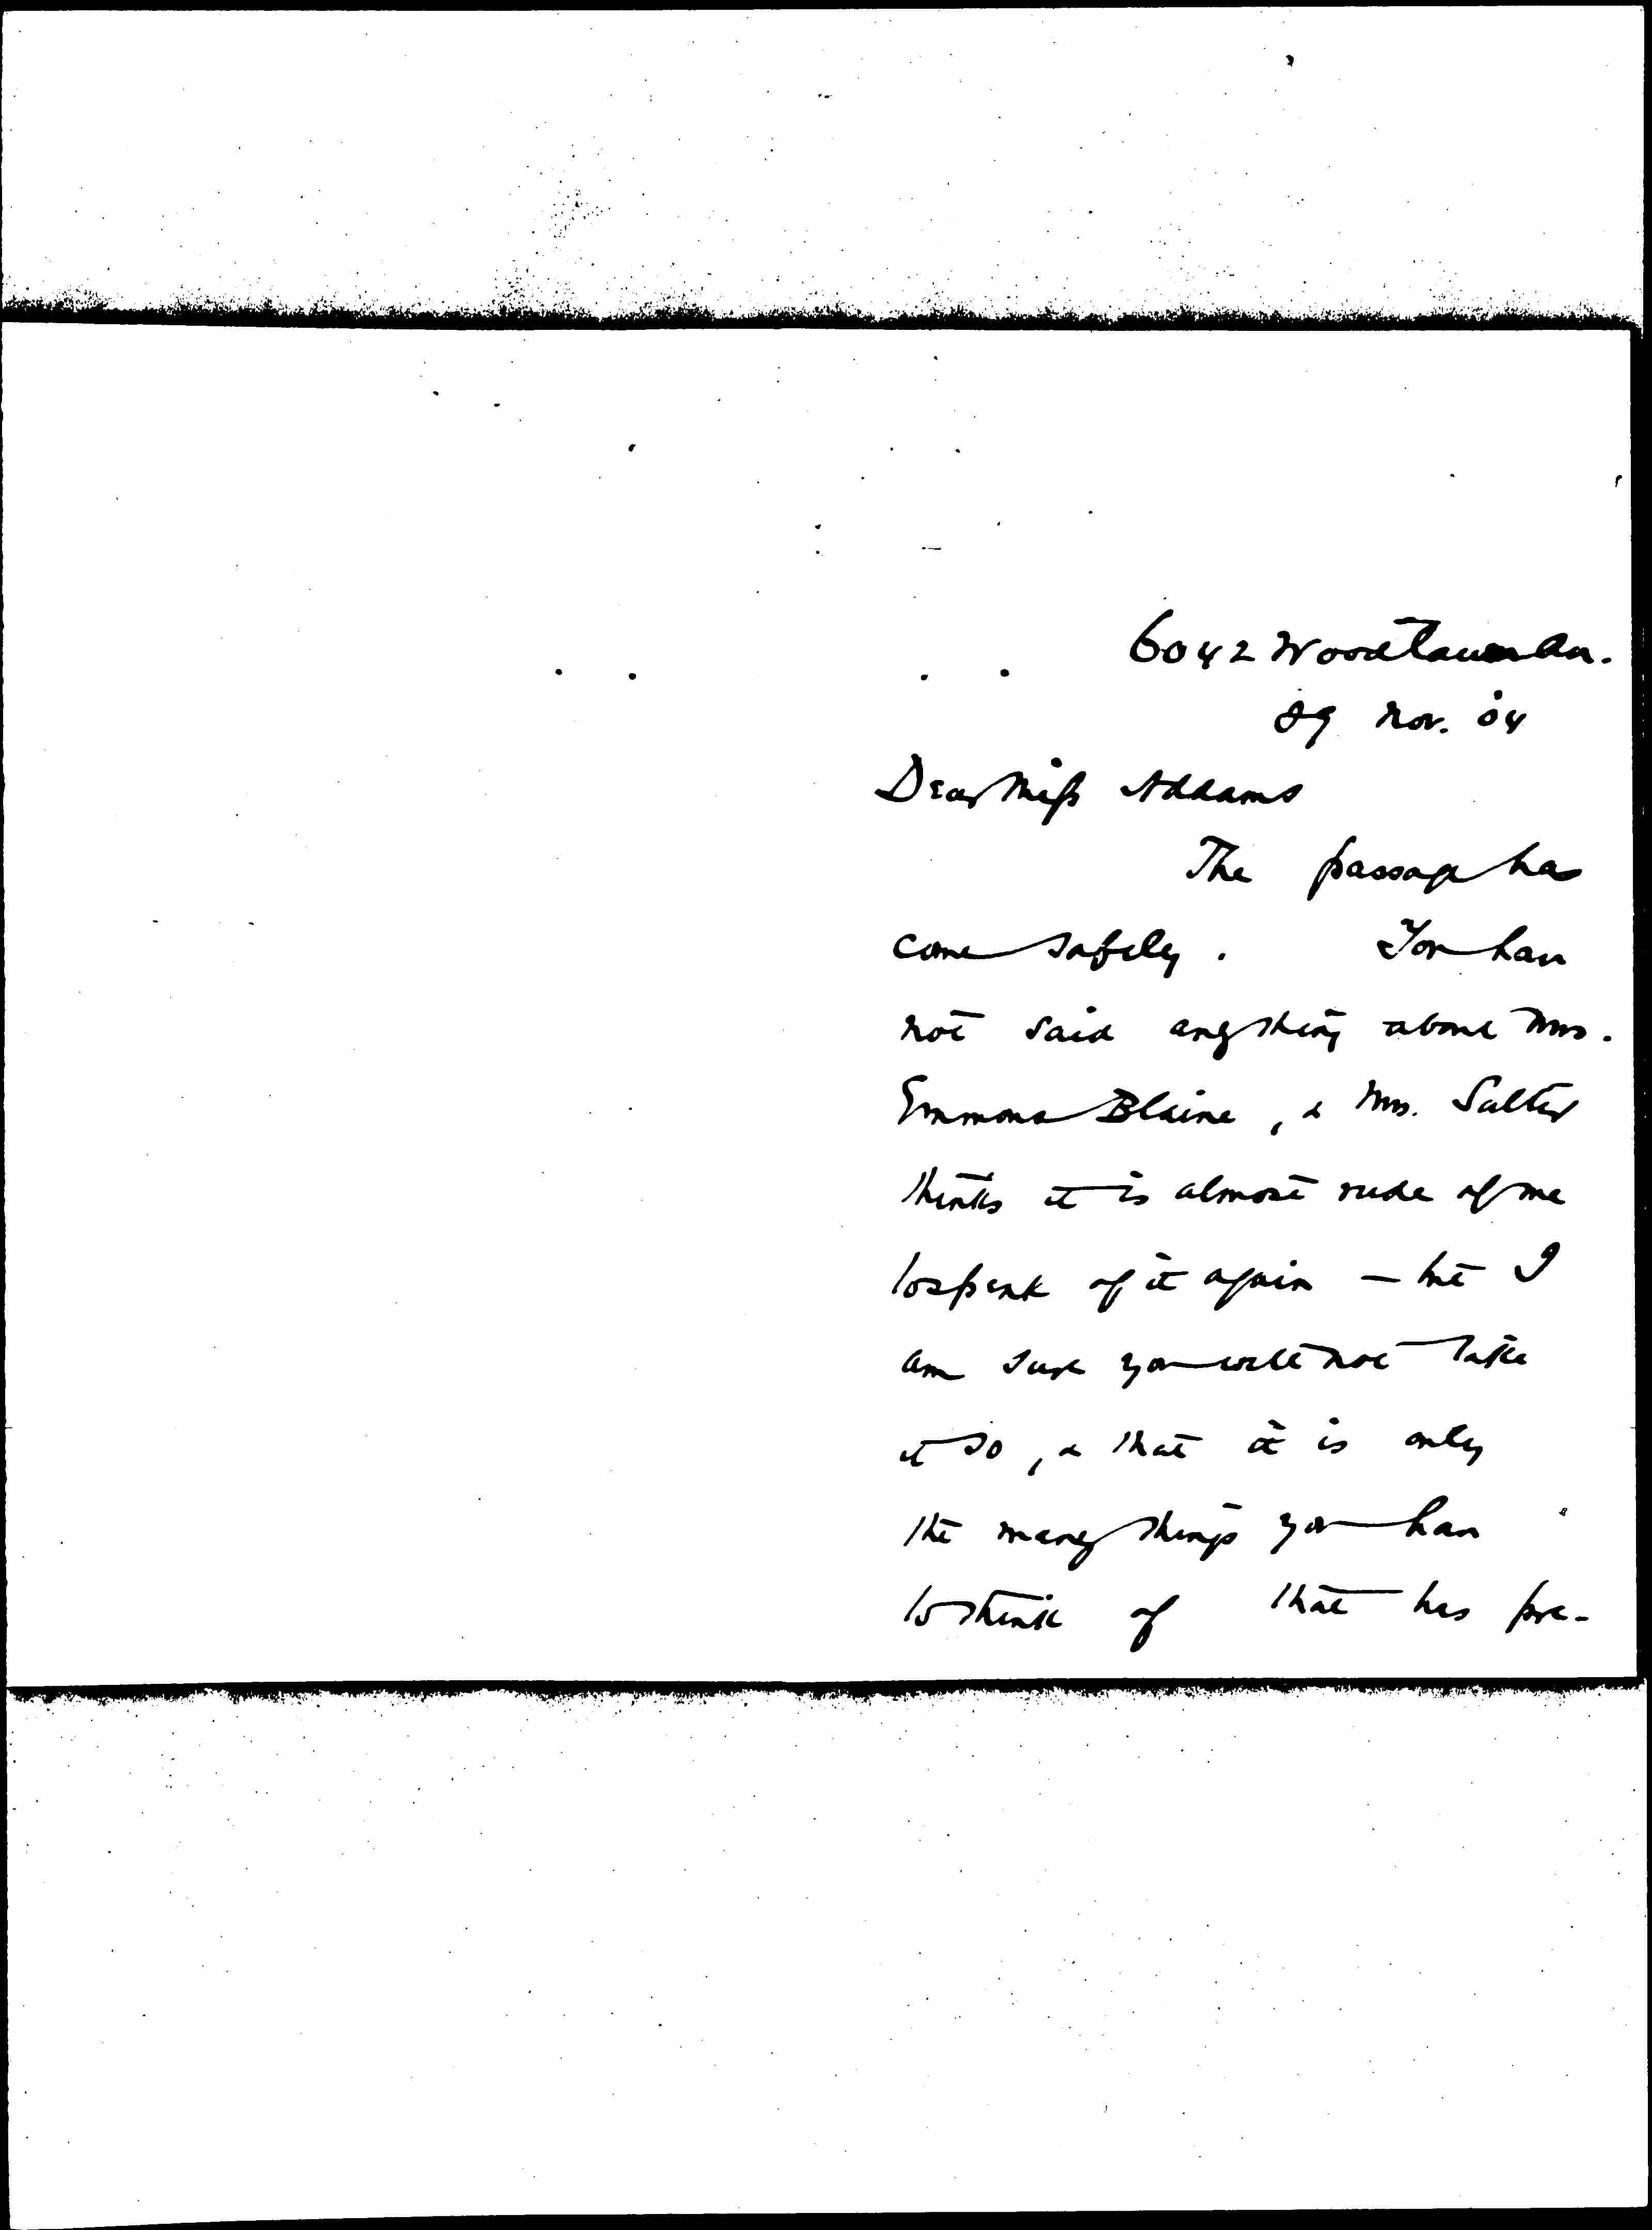 6042 Woodlawn Av.
29 Nov. 04
Dear Miss Addams
The passage has
come safely. You have
not said anything about Mrs.
Emmons Blaine, & Mrs. Salter
thinks it is almost rude of me
to speak of it again – but I
am sure you will not take
it so, & that it is only
the many things you have
to think of that has pre-